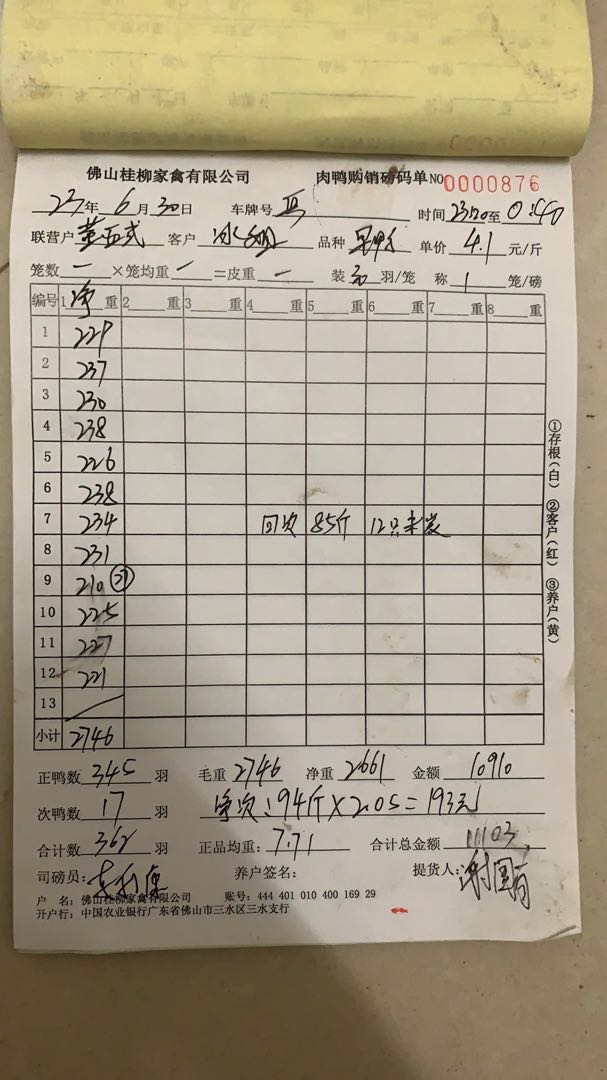 佛山桂柳家禽有限公司 肉鸭购销磅码单 NO 0000876
23年 6月 30日 车牌号 时间 23:20至 0:40
联营户 客户 品种 单价 4.1 元/斤
笼数 一 ×笼均重 一 =皮重 一 装 羽/笼 称 1 笼/磅
编号 1 净 重 2 重 3 重 4 重 5 重 6 重 7 重 8 重
1 229
2 237
3 230
4 238
5 226
6 238
7 234 回次 85斤 12只未装
8 231
9 210
10 225
11 227
12 221
13
小计 2746
①存根(白) ②客户(红) ③养户(黄)
正鸭数 345 羽 毛重 2746 净重 2661 金额 10910
次鸭数 17 羽 净次:94斤×2.05=193元
合计数 362 羽 正品均重: 7.71 合计总金额 11103
司磅员: 养户签名: 提货人:
户 名: 佛山桂柳家禽有限公司 账号: 444 401 010 400 169 29
开户行: 中国农业银行广东省佛山市三水区三水支行